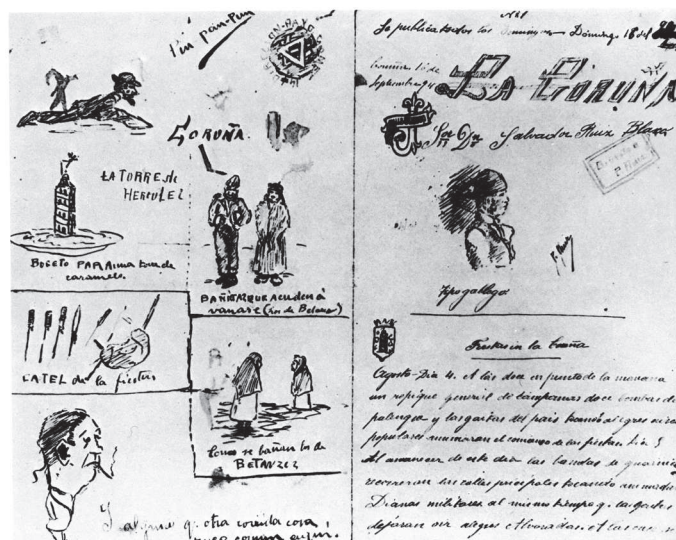 Pin pan-Pun
CORUÑA
LA TORRE de
HERCULEZ
BOCETO PARA una tour de
caramelo.
BAÑITAR que acuden á
vanarse (Los de Betanzos)
CATEL de la fiestas
Como se bañan los de
BETANZEZ
Y algunas q. otra comida cosa,
Se publica todos los Domingos — Domingo 16 del
Coruña 16 de
Septiembre 94
LA CORUÑA
Salvador Ruiz Blasco
P. Ruiz
tipo gallego
Fiestas en la Coruña
Agosto-Dia 4. A las doce en punto de la manana
un repique general de campanas doce bombas de
palenque y las gaitas del pais tocando alegres aires
populares anunciaran el comienzo de las fiestas. Dia 5
Al amanecer de este dia las bandas de guarnicio
recorreran las calles principales tocando
Dianas militares al mismo tiempo q. las gaitas
dejaran oir alegres Alvoradas. A las